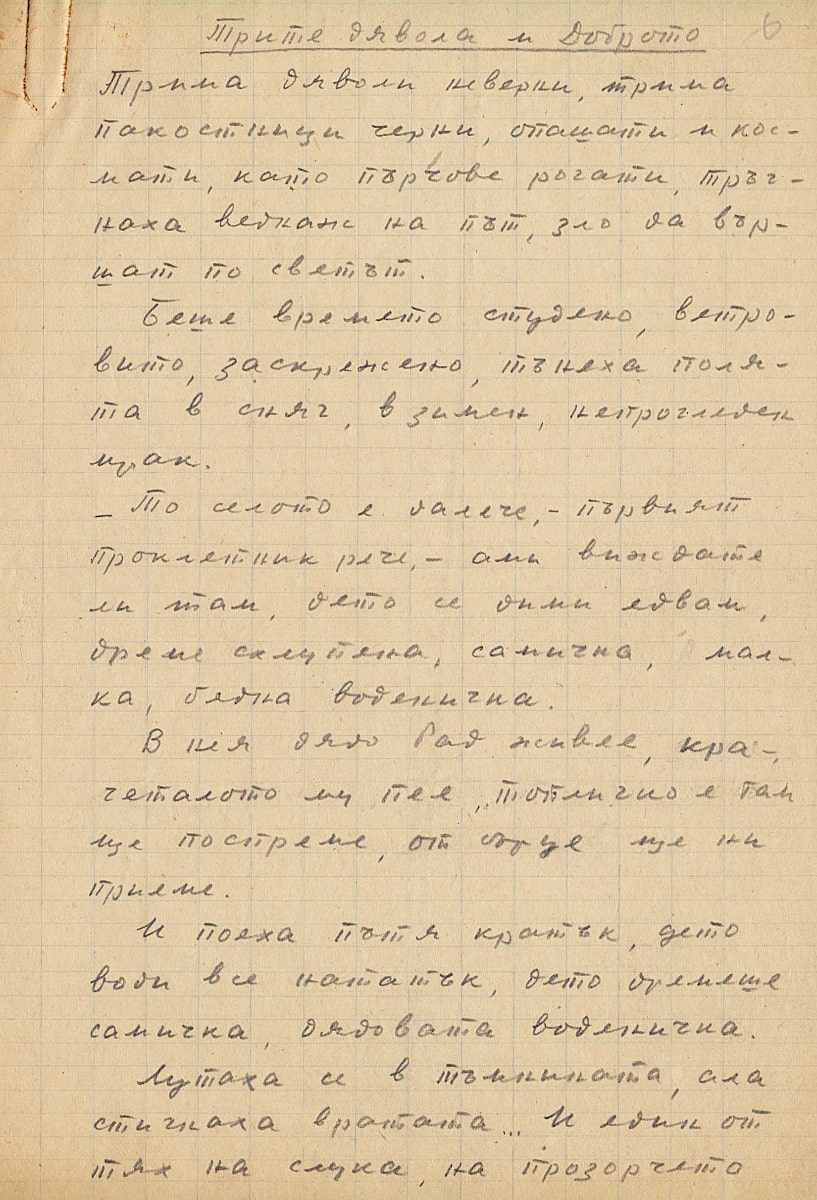 Трите дявола и Доброто
6
Трима дяволи неверни, трима
пакостници черни, опашати и кос-
мати, като пърчове рогати, тръг-
наха веднаж на път, зло да вър-
шат по светът.
Беше времето студено, ветро-
вито, заскрежено, тънеха поля-
та в сняг, в зимен, непрогледен
мрак.
– То селото е далече, – първият
проклетник рече, – ами виждате
ли там, дето се дими едвам,
дреме схлупена, самичка, мал-
ка, бедна воденичка.
В нея дядо Рад живее, кра-
четалото му пее, топличко е там
ще постреме, от сърце ще ни
приеме.
И поеха пътя кратък, дето
води все нататък, дето дремеше
самичка, дядовата воденичка.
Лутаха се в тъмнината, ала
стигнаха вратата... И един от
тях на слука, на прозорчето